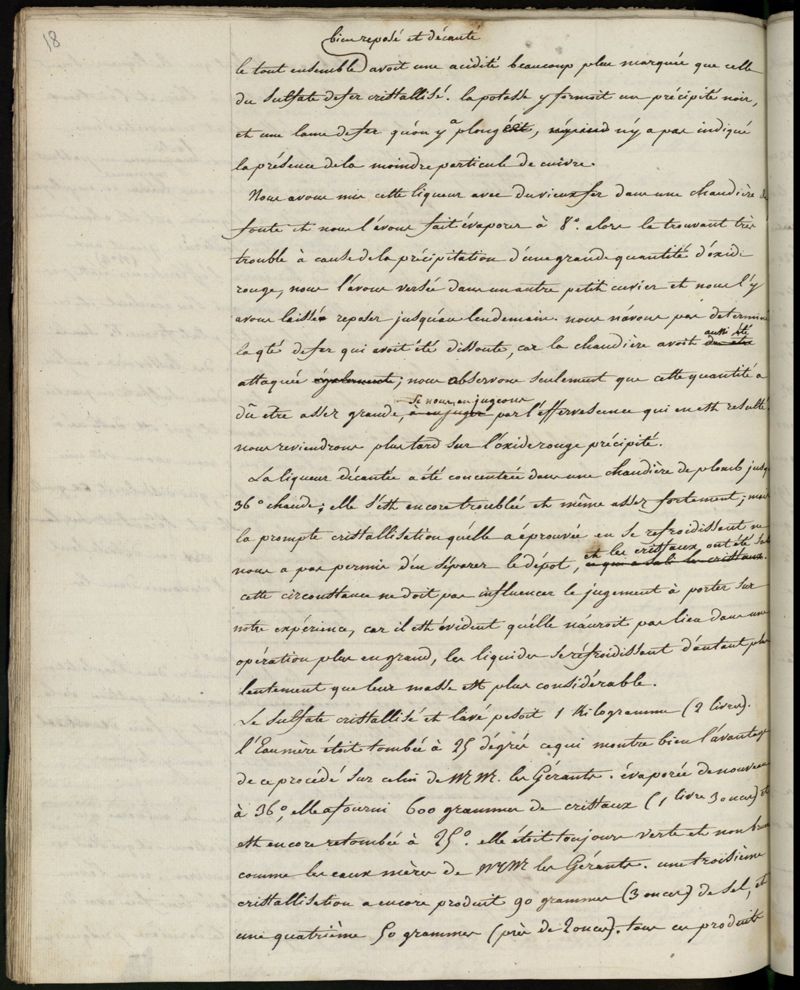 18
bien reposé et décanté
le tout ensemble avoit une acidité beaucoup plus marquée que celle
du sulfate de fer cristallisé. la potasse y formoit un précipité noir,
et une lame de fer qu'on y a plongé, n'y a pas indiqué
la présence de la moindre particule de cuivre.
Nous avons mis cette liqueur avec du vieux fer dans une chaudière de
fonte et nous l'avons fait évaporer à 8°. alors le trouvant très
trouble à cause de la précipitation d'une grande quantité d'oxide
rouge, nous l'avons versée dans un autre petit cuvier et nous l'y
avons laissé reposer jusqu'au lendemain. nous n'avons pas déterminé
aussi été
la qté de fer qui avoit été dissoute, car la chaudière avoit
attaquée également; nous observons seulement que cette quantité a
si nous en jugeons
dû etre assez grande, à en juger par l'effervescence qui en est resulté.
nous reviendrons plus tard sur l'oxide rouge précipité.
La liqueur décantée a été concentrée dans une chaudière de plomb jusqu'
36° chaude; elle s'est encore troublée et même assez fortement; mais
la prompte cristallisation qu'elle a éprouvée en se refroidissant ne
et les cristaux ont été
nous a pas permis d'en séparer le dépôt, ce qui a sali les cristaux.
cette circonstance ne doit pas influencer le jugement à porter sur
notre expérience, car il est évident qu'elle n'auroit pas lieu dans une
opération plus en grand, les liquides se réfroidissent d'autant plus
lentement que leur masse est plus considérable.
Le sulfate cristallisé et lavé pesoit 1 Kilogramme (2 livres).
l'Eau mère étoit tombée à 25 dégrés ce qui montre bien l'avantage
de ce procédé sur celui de M.M. les Gérants. évaporée de nouveau
à 36°, elle a fourni 600 grammes de cristaux (1 livre 3 onces) et
est encore retombée à 25°. elle étoit toujours verte et non brune
comme les eaux mères de MM les Gérants. une troisième
cristallisation a encore produit 90 grammes (3 onces) de sel, et
une quatrième 50 grammes (près de 2 onces). tous ces produits